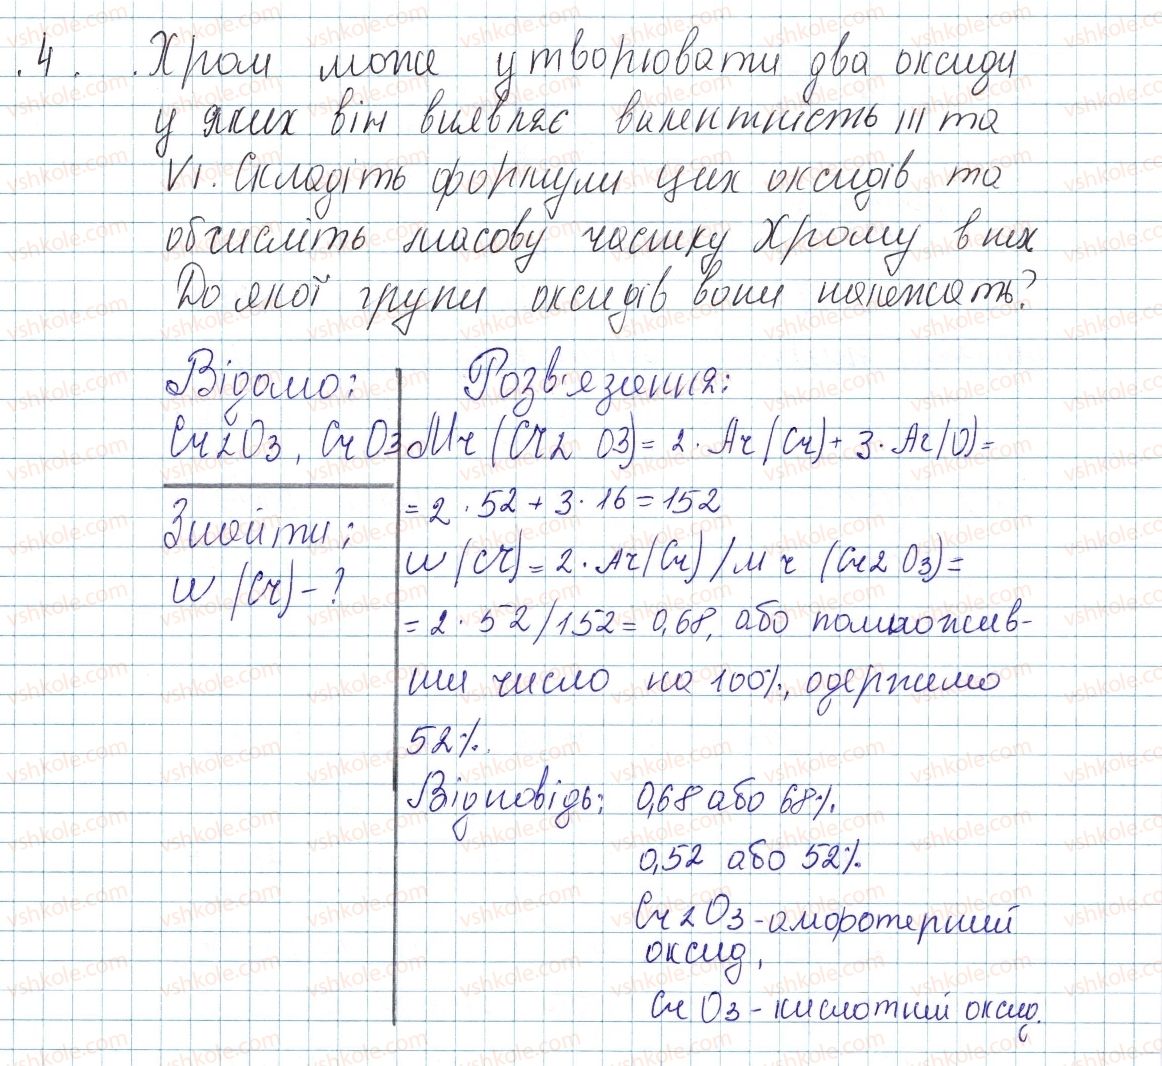 4. Хром може утворювати два оксиди
у яких він виявляє валентність III та
VI. Складіть формули цих оксидів та
обчисліть масову частку Хрому в них
До якої групи оксидів вони належать?
Відомо:
Cr2O3, CrO3
Знайти:
W (Cr) - ?
Розв'язання:
Mr (Cr2 O3) = 2 · Ar (Cr) + 3 · Ar (O) =
= 2 · 52 + 3 · 16 = 152
W (Cr) = 2 · Ar (Cr) / Mr (Cr2 O3) =
= 2 · 52 / 152 = 0,68, або помножив-
ши число на 100%, одержимо
52%.
Відповідь: 0,68 або 68%.
0,52 або 52%.
Cr2O3 - амфотерний
оксид,
CrO3 - кислотний оксид.